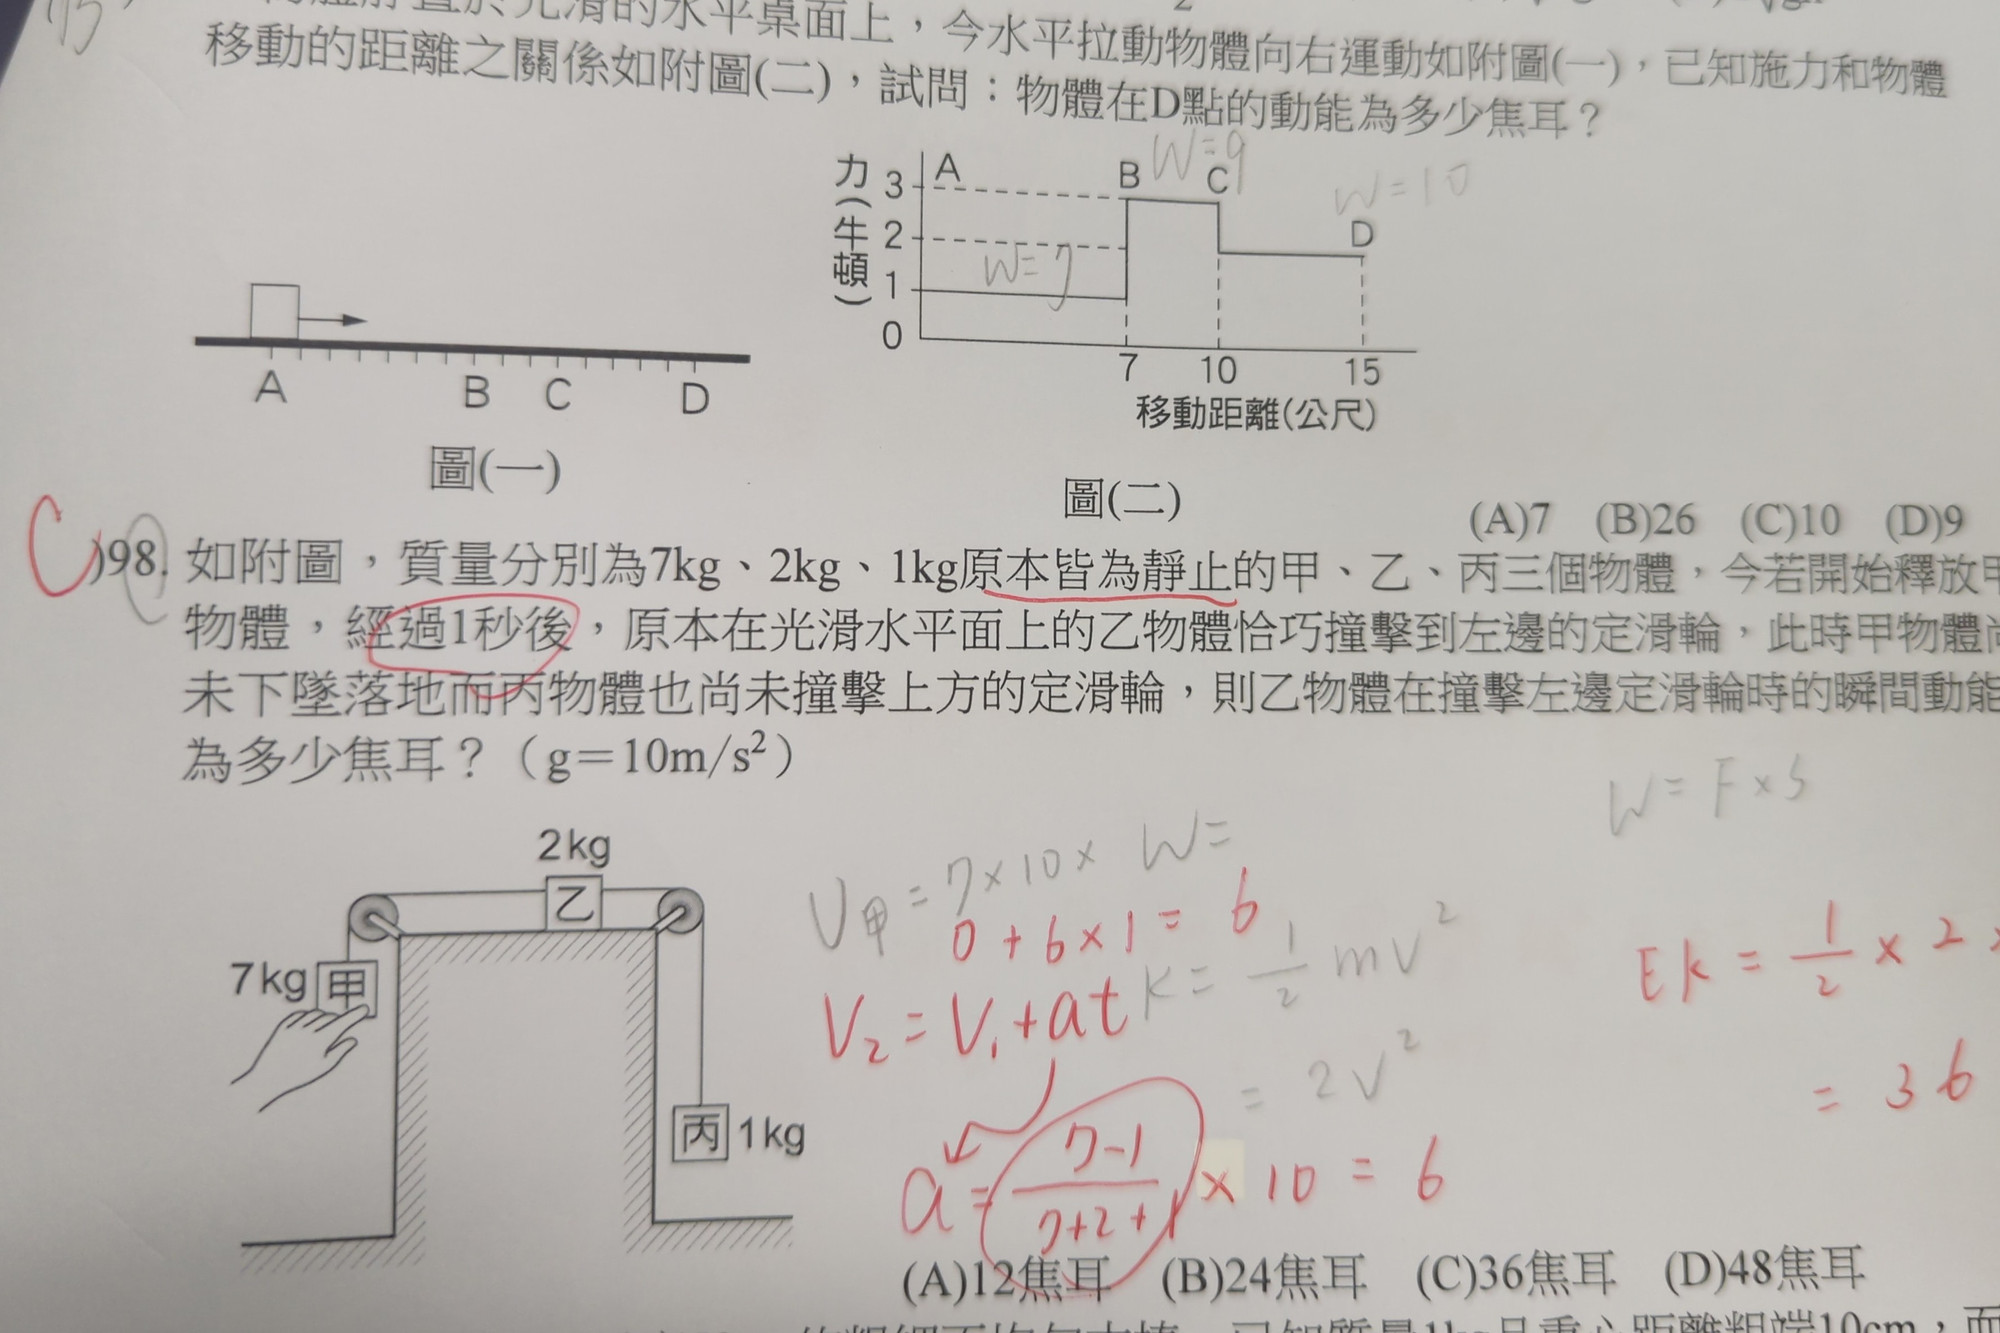 置於光滑的水平桌面上，今水平拉動物體向右運動如附圖(一)，已知施力和物體
移動的距離之關係如附圖(二)，試問：物體在D點的動能為多少焦耳？
力(牛頓)
3
2
1
0
A
B
C
D
W=9
W=10
W=7
7 10 15
移動距離(公尺)
A B C D
圖(一)
圖(二)
(A)7 (B)26 (C)10 (D)9
C)98. 如附圖，質量分別為7kg、2kg、1kg原本皆為靜止的甲、乙、丙三個物體，今若開始釋放甲
物體，經過1秒後，原本在光滑水平面上的乙物體恰巧撞擊到左邊的定滑輪，此時甲物體尚
未下墜落地而丙物體也尚未撞擊上方的定滑輪，則乙物體在撞擊左邊定滑輪時的瞬間動能
為多少焦耳？（g＝10m/s²）
W=F×S
2kg
乙
7kg 甲
丙 1kg
U甲=7×10× W=
0+6×1=6
K=1/2 mv²
V₂=V₁+at
=2v²
Ek=1/2×2×
=36
a=(7-1)/(7+2+1)×10=6
(A)12焦耳 (B)24焦耳 (C)36焦耳 (D)48焦耳